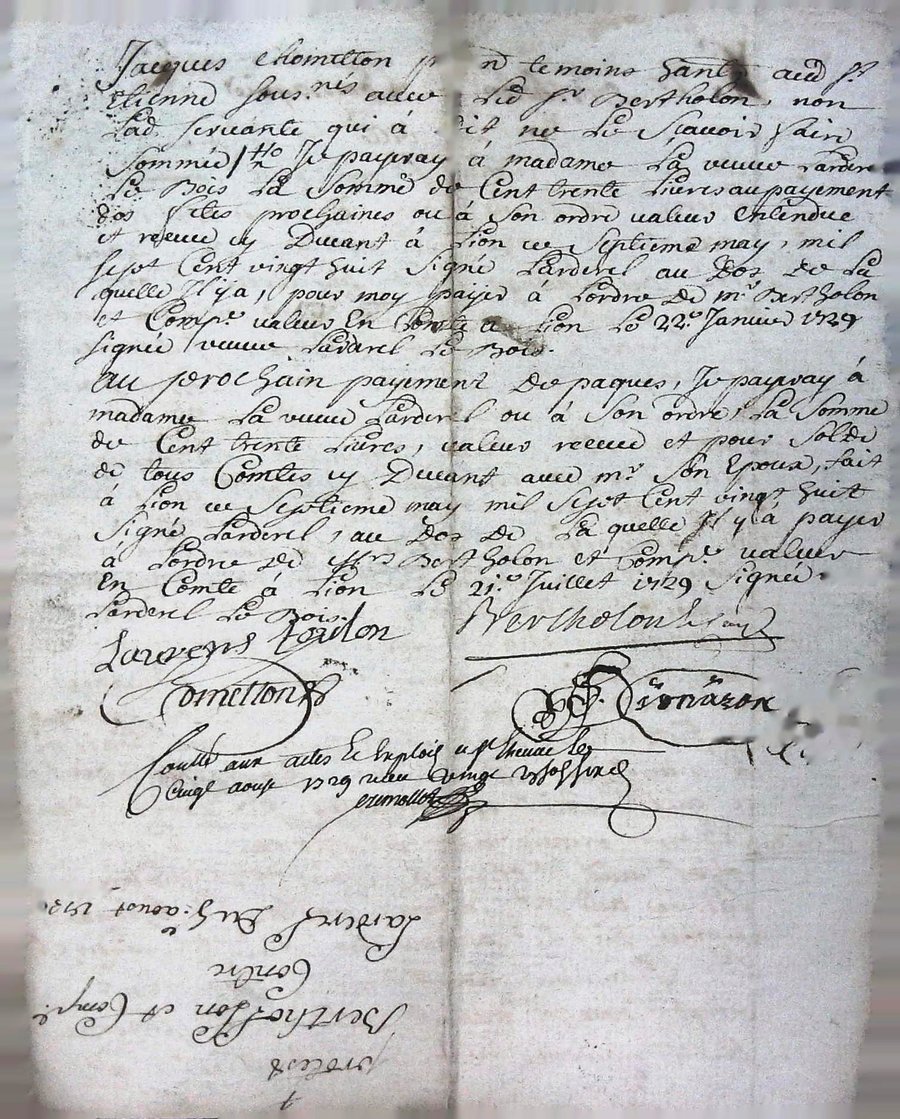 Jacques Chomitton temoins hants aud St
Etienne sousnés avec Led Sr. Bertholon, non
Lad. servante qui à dit ne Le sçavoir faire
Sommée / Je payeray à madame La veuve Larderel
Le Bois La Somme de Cent trente Livres au payement
des prochaines ou à Son ordre valeur Entendue
et receue cy Devant à Lion ce Septieme may, mil
Sept Cent vingt huit Signé Larderel au Dos de La
quelle Il y a, pour moy payer à Lordre de mr. Bertholon
et Compe. valeur En Comte à Lion Le 22e. Janvier 1729
Signée veuve Larderel Le Bois.
au prochain payement De paques, Je payeray à
madame La veuve Larderel ou à Son ordre, La Somme
de Cent trente Livres, valeur receue et pour Solde
de tous Comtes cy Devant avec mr. Son Epoux, fait
à Lion ce Septieme may mil Sept Cent vingt huit
Signé Larderel, au Dos de La quelle Il y à payer
à Lordre de Mrs Bertholon et Compe. valeur
En Comte à Lion Le 21e. Juillet 1729 Signée
Larderel Le Bois.
Bertholon
Laurens
Comitton
aux actes Et Exploits a St Etienne le
aoust 1729 vingt
Larderel Du 5e. aoust
Contre
Bertholon et Compe
protest